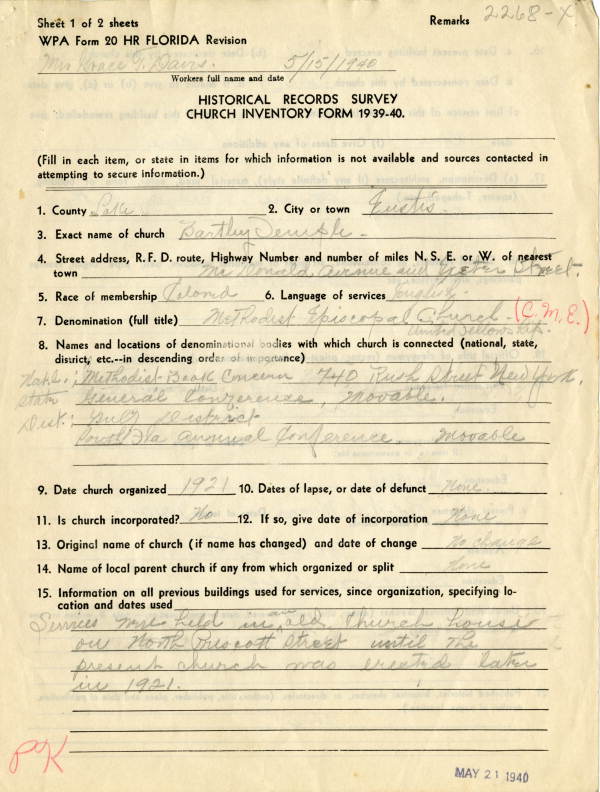 Sheet 1 of 2 sheets Remarks 2268-X
WPA Form 20 HR FLORIDA Revision
Mrs Grace T. Davis. 5/15/1940
Workers full name and date
HISTORICAL RECORDS SURVEY
CHURCH INVENTORY FORM 1939-40.
(Fill in each item, or state in items for which information is not available and sources contacted in
attempting to secure information.)
1. County Lake 2. City or town Eustis.
3. Exact name of church Bartley Temple.
4. Street address, R. F. D. route, Highway Number and number of miles N. S. E. or W. of nearest
town Mc Donald Avenue and Street.
5. Race of membership Colored 6. Language of services English.
7. Denomination (full title) Methodist Episcopal Church. (C.M.E.)
8. Names and locations of denominational bodies with which church is connected (national, state,
district, etc.--in descending order of importance)
Natl.; Methodist Book Concern 740 Rush Street New York.
State General Conference, Movable.
Dist: Gulf District
South Fla Annual Conference. Movable
9. Date church organized 1921 10. Dates of lapse, or date of defunct None.
11. Is church incorporated? No 12. If so, give date of incorporation None
13. Original name of church (if name has changed) and date of change No change
14. Name of local parent church if any from which organized or split None
15. Information on all previous buildings used for services, since organization, specifying lo-
cation and dates used
Services were held in an old church house
on North Prescott Street until the
present church was erected later
in 1921.
PK
MAY 21 1940